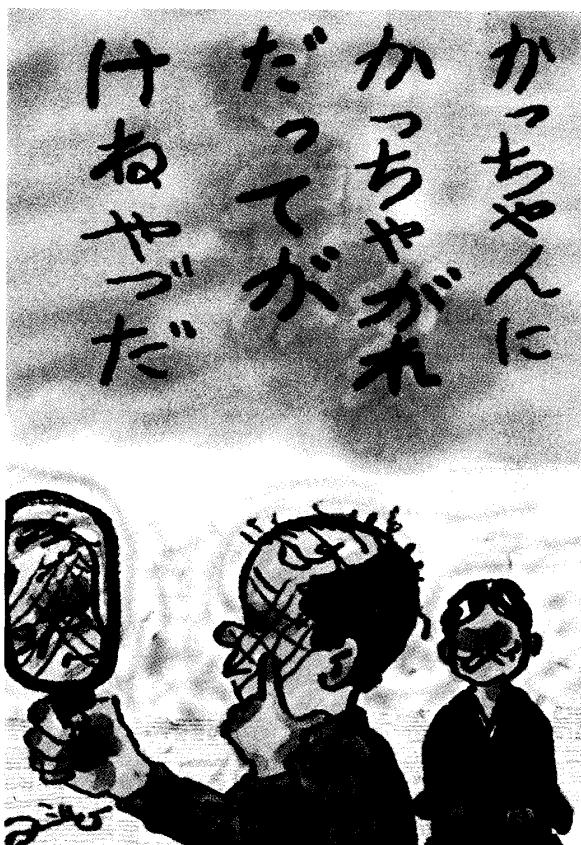 かっちゃんに
かっちゃがれ
だってが
けねやづだ